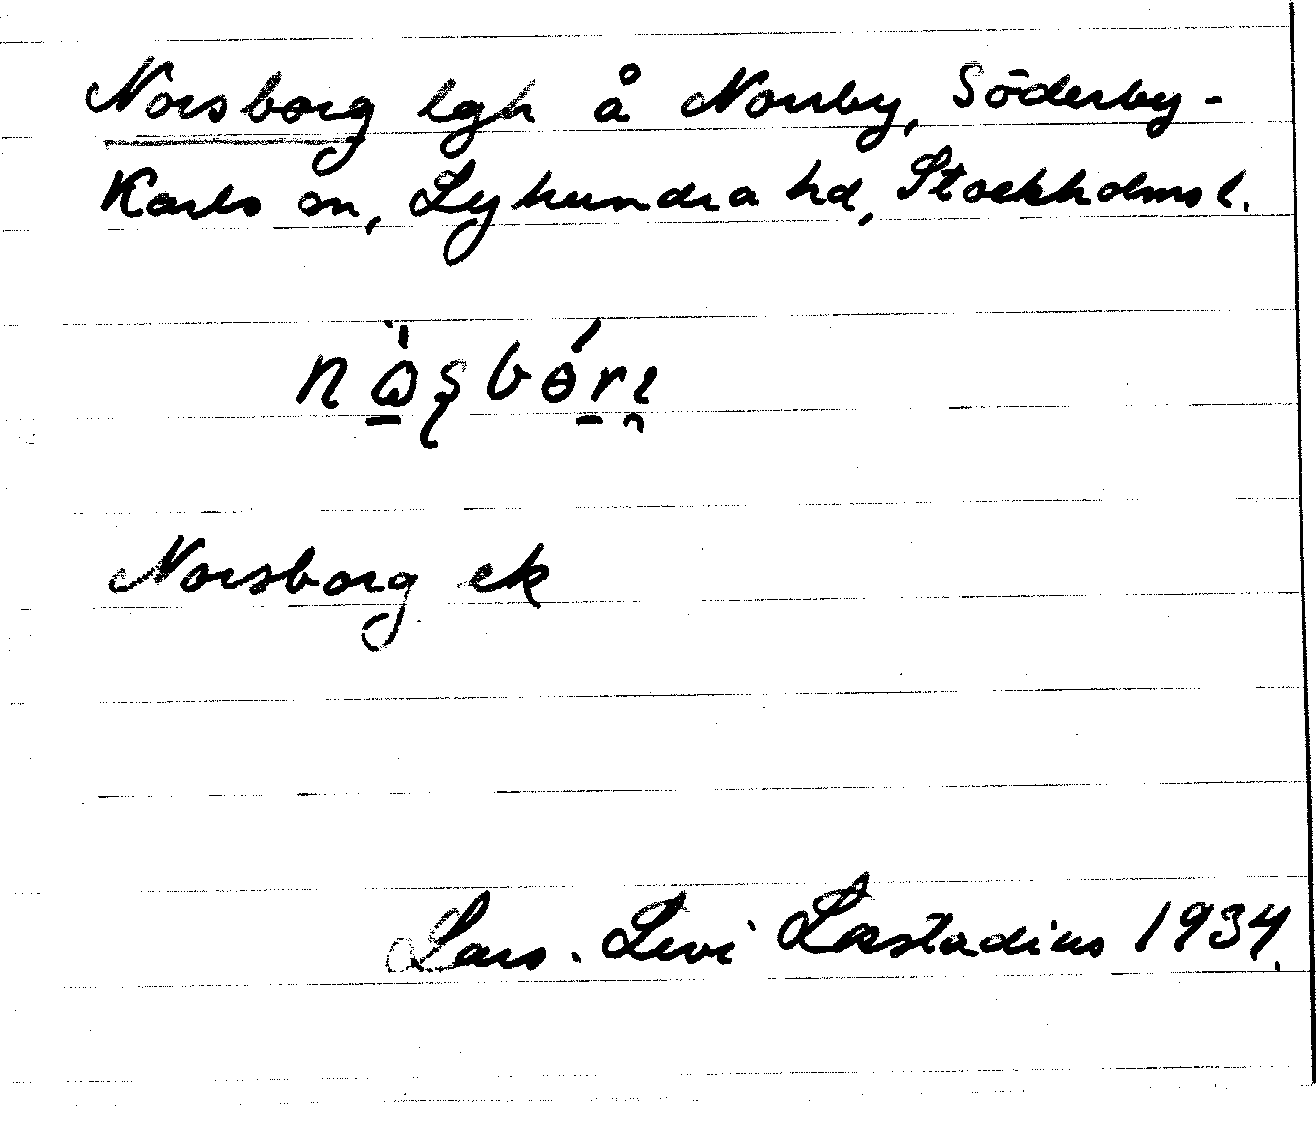 Norsborg lgh å Norrby, Söderby-
Karls sn, Lyhundra hd, Stockholms l.
Norsborg ek
Lars-Levi Læstadius 1934.